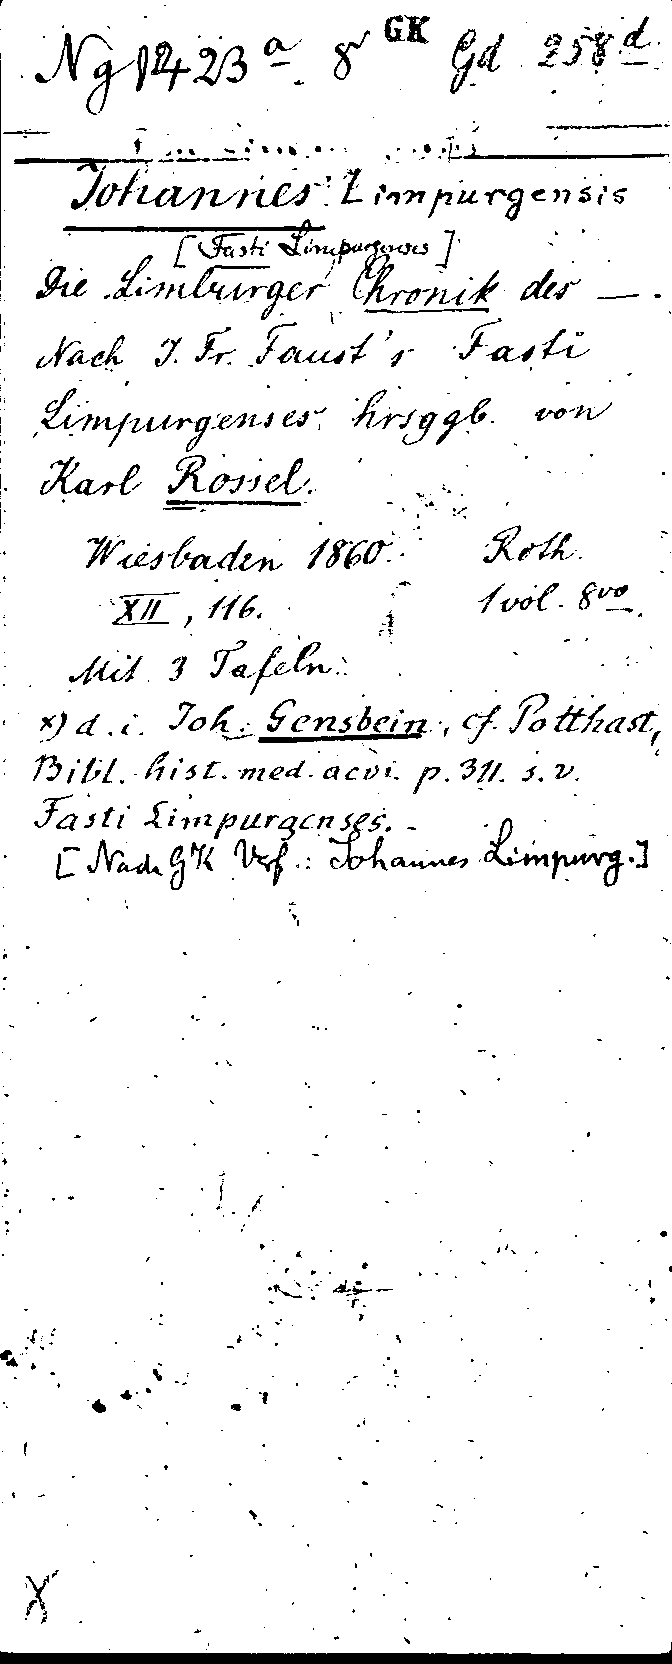 Ng 1423 a 8° GK Gd 258 d
Johannes Limpurgensis
[Fasti Limpurgenses]
Die Limburger Chronik des —.
Nach J. Fr. Faust's Fasti
Limpurgenses hrsggb. von
Karl Rossel.
Wiesbaden 1860. Roth.
XII, 116. 1 vol. 8vo.
Mit 3 Tafeln.
x) d. i. Joh. Gensbein, cf. Potthast,
Bibl. hist. med. aevi. p. 311. s. v.
Fasti Limpurgenses.
[Nach GK Verf.: Johannes Limpurg.]